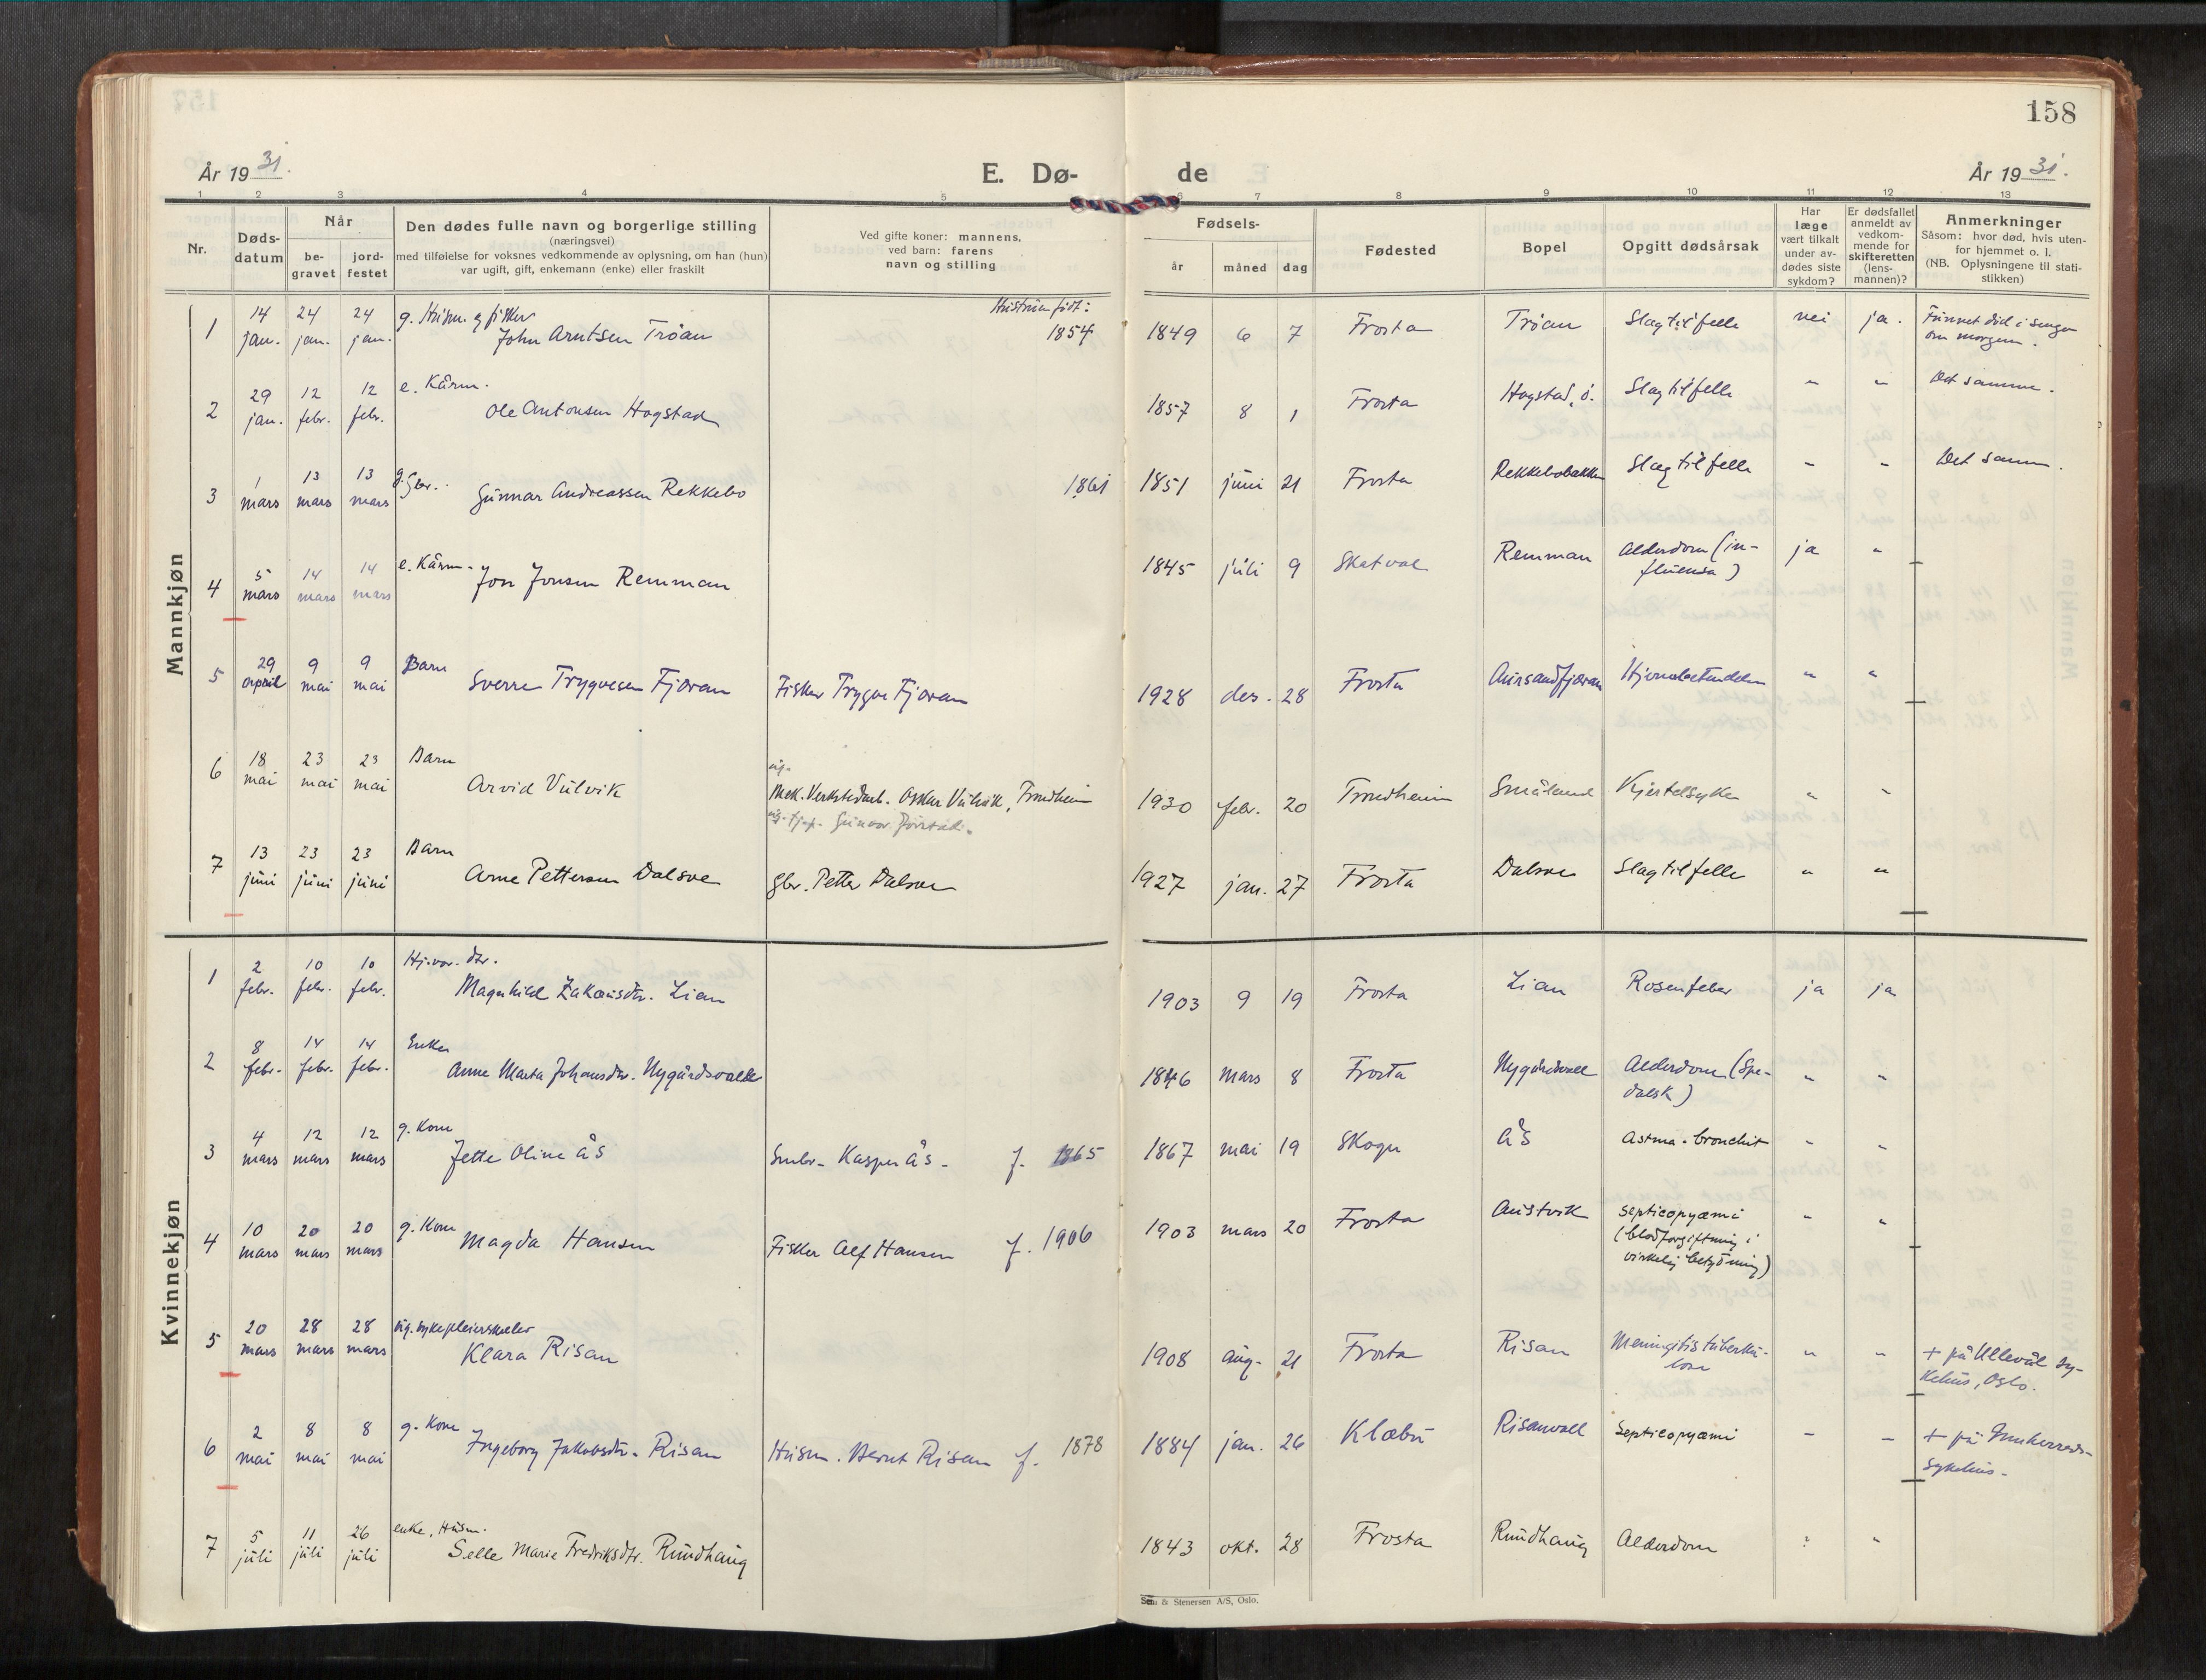 158
År 19 31.
E. Dø-
de
År 19 31.
1 2 3 4 5 6 7 8 9 10 11 12 13
Nr.
Døds-
datum
Når
be-
gravet
jord-
festet
Den dødes fulle navn og borgerlige stilling
(næringsvei)
med tilføielse for voksnes vedkommende av oplysning, om han (hun)
var ugift, gift, enkemann (enke) eller fraskilt
Ved gifte koner: mannens,
ved barn: farens
navn og stilling
Fødsels-
år måned dag
Fødested
Bopel
Opgitt dødsårsak
Har
læge
vært tilkalt
under av-
dødes siste
sykdom?
Er dødsfallet
anmeldt av
vedkom-
mende for
skifteretten
(lens-
mannen)?
Anmerkninger
Såsom: hvor død, hvis uten-
for hjemmet o. l.
(NB. Oplysningene til stati-
stikken)
Mannkjøn
1 14 jan. 24 jan. 24 jan. g. Husm. og fisker
John Arntsen Trøan
Hustrun født:
1854 1849 6 7 Frosta Trøan Slagtilfelle nei ja. Funnet død i sengen
om morgen.
2 29 jan. 12 febr. 12 febr. e. Kårm.
Ole Antonsen Hogstad 1857 8 1 Frosta Hogstad, ö. Slagtilfelle " " Det samme.
3 1 mars 13 mars 13 mars g. Gbr.
Gunnar Andreassen Rekkebo 1861 1851 juni 21 Frosta Rekkebobakken Slagtilfelle " " Det samm.
4 5 mars 14 mars 14 mars e. Kårm.
Jon Jonsen Remman 1845 juli 9 Skatval Remman Alderdom (in-
fluensa) ja "
5 29 april 9 mai 9 mai Barn
Sverre Trygvesen Fjæran Fisker Trygve Fjæran 1928 des. 28 Frosta Aursandfjæran Hjernebetendelse " "
6 18 mai 23 mai 23 mai Barn
Arvid Vulvik
ug.
Mek. Verkstedarb. Oskar Vulvik, Trondheim
ug. tj.p. Gunvor
1930 febr. 20 Trondheim Småland Kjertelsyke " "
7 13 juni 23 juni 23 juni Barn
Arne Pettersen Dalsve gbr. Petter Dalsve 1927 jan. 27 Frosta Dalsve Slagtilfelle " "
Kvinnekjøn
1 2 febr. 10 febr. 10 febr. Hj.vær. dtr.
Magnhild Zakariasdtr. Lian 1903 9 19 Frosta Lian Rosenfeber ja ja
2 8 febr. 14 febr. 14 febr. Enke
Anne Marta Johansdtr. Nygårdsvald 1846 mars 8 Frosta Nygårdsvall Alderdom (Spe-
dalsk) " "
3 4 mars 12 mars 12 mars g. Kone
Jette Oline Ås Smbr. Kasper Ås - f. 1865 1867 mai 19 Skogn Ås Astma - bronchit " "
4 10 mars 20 mars 20 mars g. Kone
Magda Hansen Fisker Alf Hansen f. 1906 1903 mars 20 Frosta Austvik septicopyæmi
(blodforgiftning i
virkelig betydning) " "
5 20 mars 28 mars 28 mars ug. sykepleierskeelev
Klara Risan 1908 aug. 21 Frosta Risan Meningitis tuberku-
losa " " + på Ullevål sy-
kehus, Oslo.
6 2 mai 8 mai 8 mai g. Kone
Ingeborg Jakobsdtr. Risan Husm. Bernt Risan f. 1878 1884 jan. 26 Klæbu Risanvall Septicopyæmi " " + på Innherreds-
sykehus.
7 5 juli 11 juli 26 juli enke, Husm.
Selle Marie Fredriksdtr. Rundhaug 1843 okt. 28 Frosta Rundhaug Alderdom ? "
Sem & Stenersen A/S, Oslo.